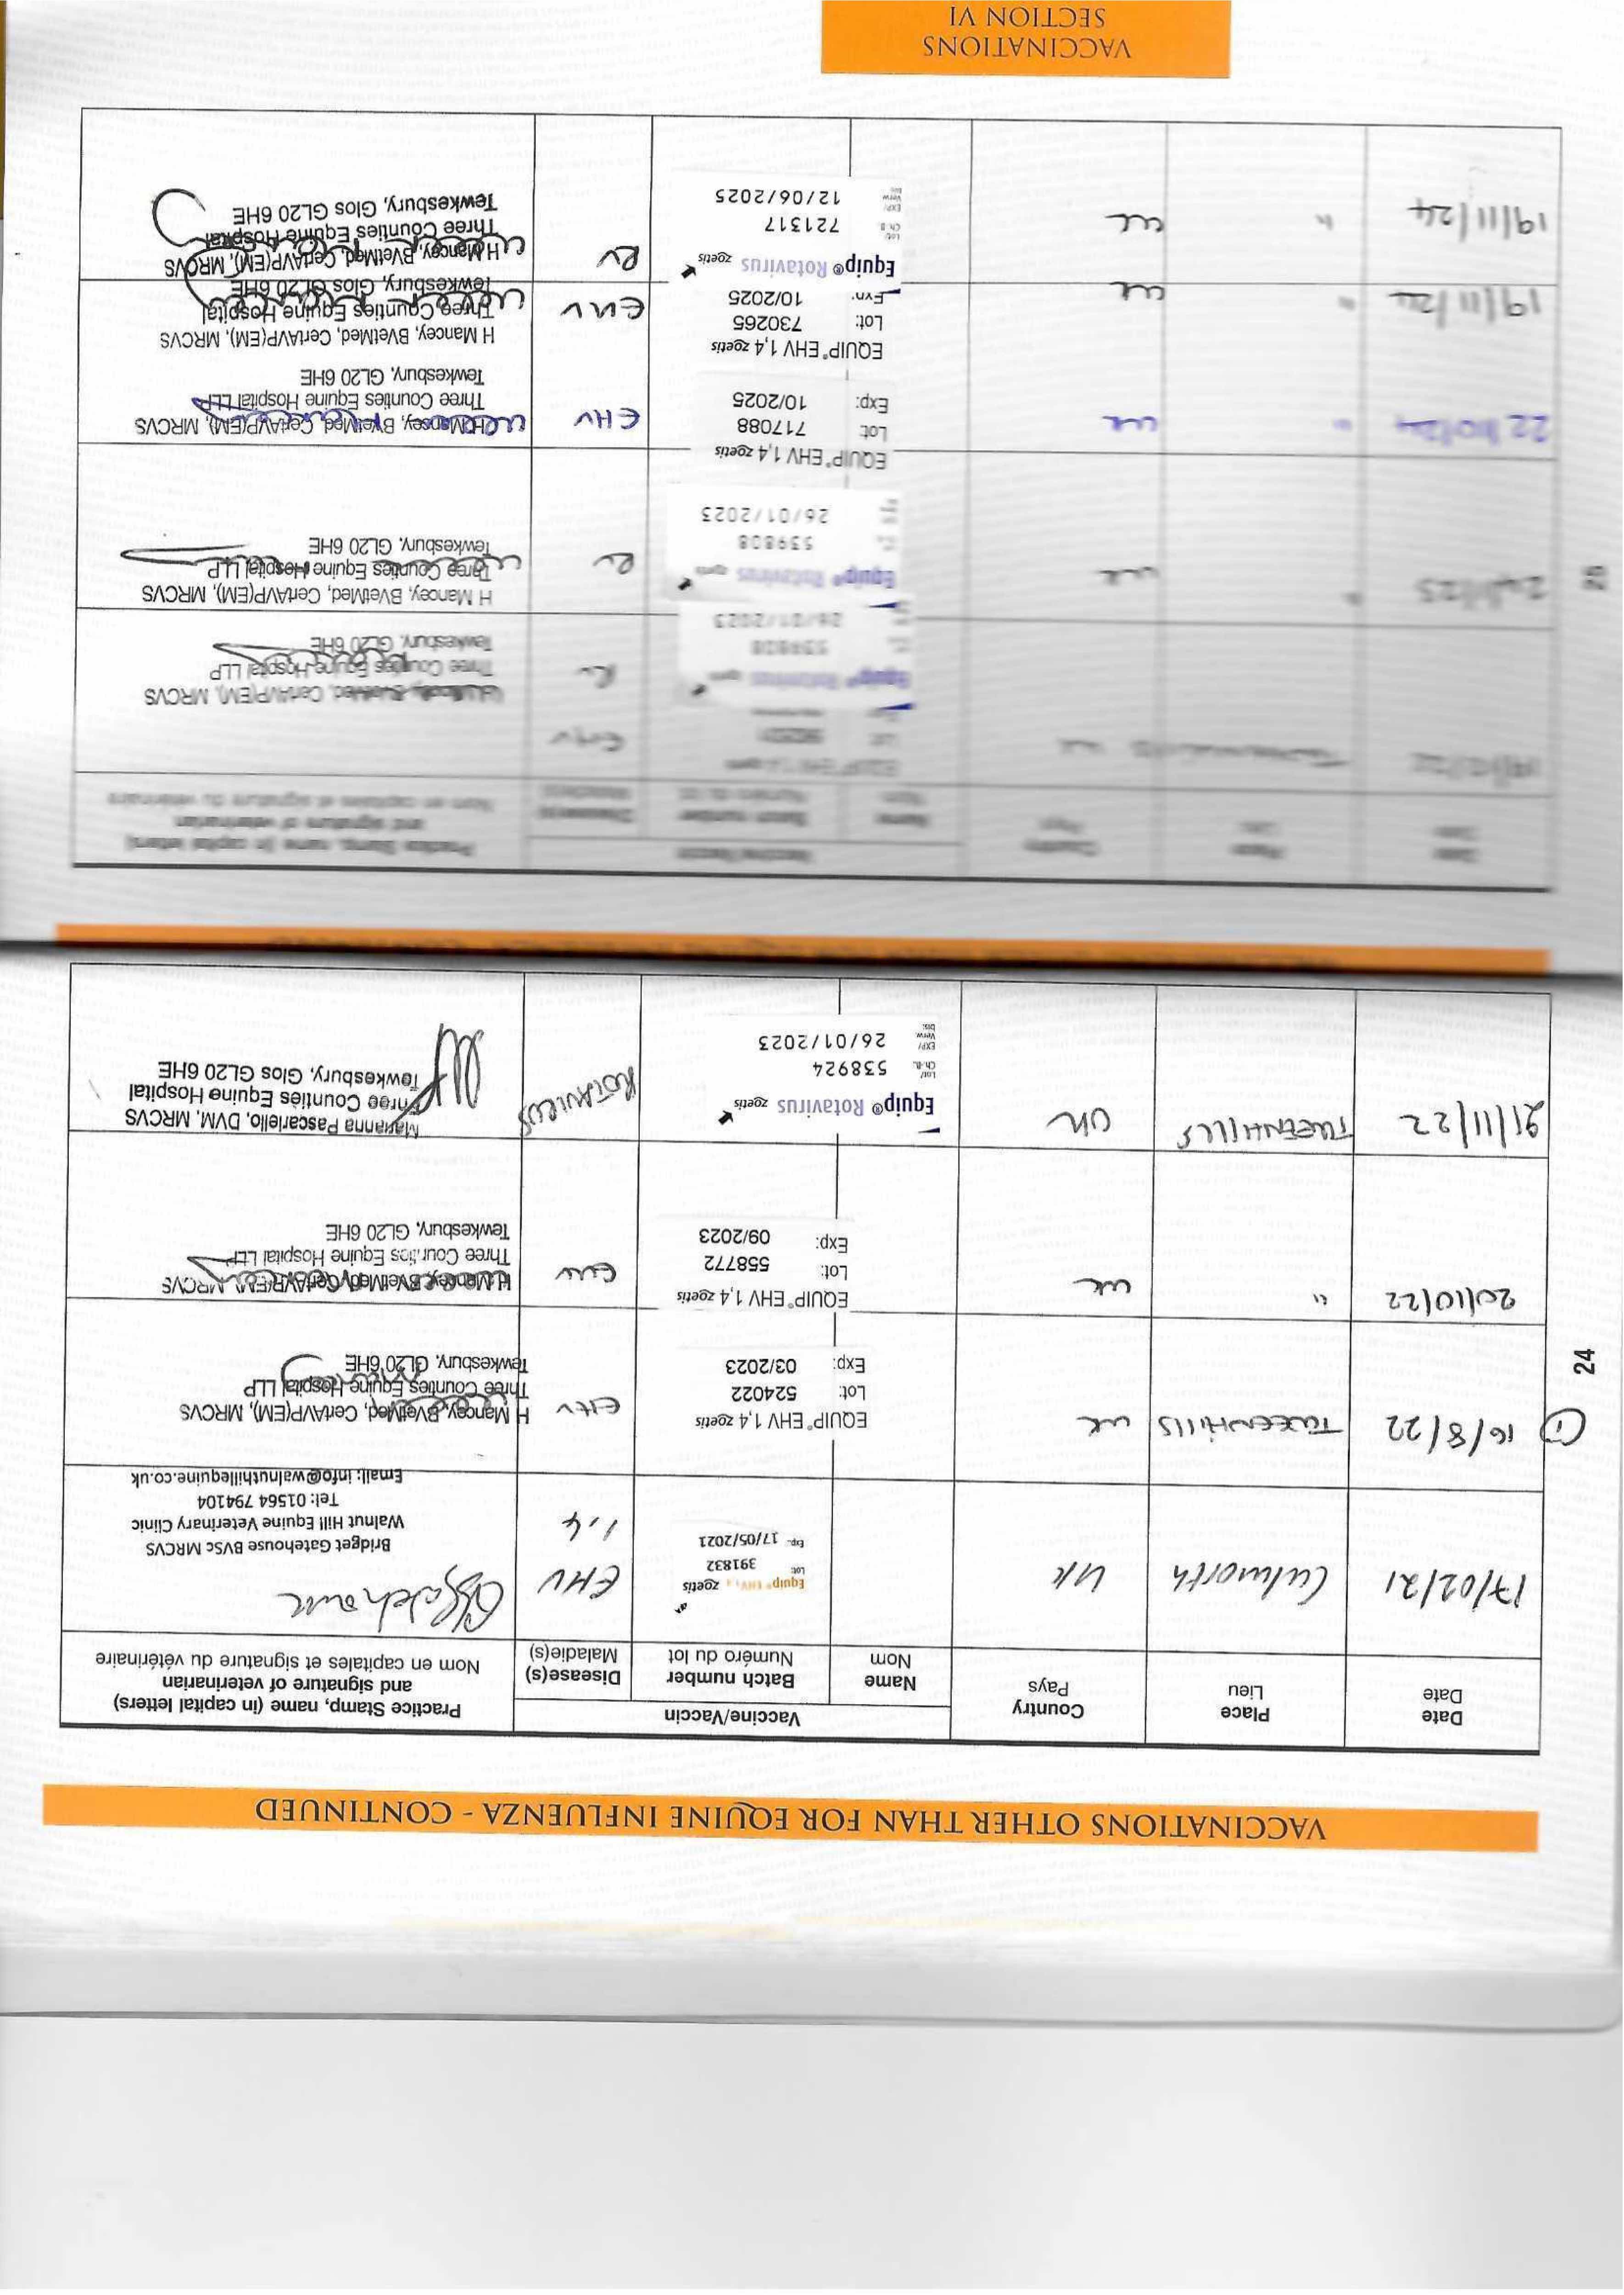 VACCINATIONS OTHER THAN FOR EQUINE INFLUENZA - CONTINUED
Date
Date
Place
Lieu
Country
Pays
Vaccine/Vaccin
Name
Nom
Batch number
Numéro du lot
Disease(s)
Maladie(s)
Practice Stamp, name (in capital letters)
and signature of veterinarian
Nom en capitales et signature du vétérinaire
17/02/21
Culworth
UK
Equip® EHV 1,4 zoetis
Lot: 391832
Exp: 17/05/2021
EHV
1.4
Bridget Gatehouse BVSc MRCVS
Walnut Hill Equine Veterinary Clinic
Tel: 01564 794104
Email: info@walnuthillequine.co.uk
24
1
16/8/22
TWEENHILLS
UK
EQUIP® EHV 1,4 zoetis
Lot: 524022
Exp: 03/2023
EHV
H Mancey, BVetMed, CertAVP(EM), MRCVS
Three Counties Equine Hospital LLP
Tewkesbury, GL20 6HE
20/10/22
"
UK
EQUIP® EHV 1,4 zoetis
Lot: 558772
Exp: 09/2023
EHV
H Mancey, BVetMed, CertAVP(EM), MRCVS
Three Counties Equine Hospital LLP
Tewkesbury, GL20 6HE
21/11/22
TWEENHILLS
UK
Equip® Rotavirus zoetis
Lot/ Ch.-B. 538924
EXP/ Verw. bis: 26/01/2023
ROTAVIRUS
Marianna Pascariello, DVM, MRCVS
Three Counties Equine Hospital
Tewkesbury, Glos GL20 6HE
Date
Date
Place
Lieu
Country
Pays
Vaccine/Vaccin
Name
Nom
Batch number
Numéro du lot
Disease(s)
Maladie(s)
Practice Stamp, name (in capital letters)
and signature of veterinarian
Nom en capitales et signature du vétérinaire
19/12/22
TWEENHILLS
UK
EQUIP® EHV 1,4 zoetis
Lot:
EHV
Equip® Rotavirus zoetis
539808
26/01/2023
RV
CertAVP(EM), MRCVS
Three Counties Equine Hospital LLP
Tewkesbury, GL20 6HE
25
"
UK
Equip® Rotavirus zoetis
539808
26/01/2023
RV
H Mancey, BVetMed, CertAVP(EM), MRCVS
Three Counties Equine Hospital LLP
Tewkesbury, GL20 6HE
22/10/24
"
UK
EQUIP® EHV 1,4 zoetis
Lot: 717088
Exp: 10/2025
EHV
H Mancey, BVetMed, CertAVP(EM), MRCVS
Three Counties Equine Hospital LLP
Tewkesbury, GL20 6HE
19/11/24
"
UK
EQUIP® EHV 1,4 zoetis
Lot: 730265
Exp: 10/2025
EHV
H Mancey, BVetMed, CertAVP(EM), MRCVS
Three Counties Equine Hospital
Tewkesbury, Glos GL20 6HE
19/11/24
"
UK
Equip® Rotavirus zoetis
Lot/ Ch.-B. 721317
EXP/ Verw. bis: 12/06/2025
RV
H Mancey, BVetMed, CertAVP(EM), MRCVS
Three Counties Equine Hospital
Tewkesbury, Glos GL20 6HE
VACCINATIONS
SECTION VI